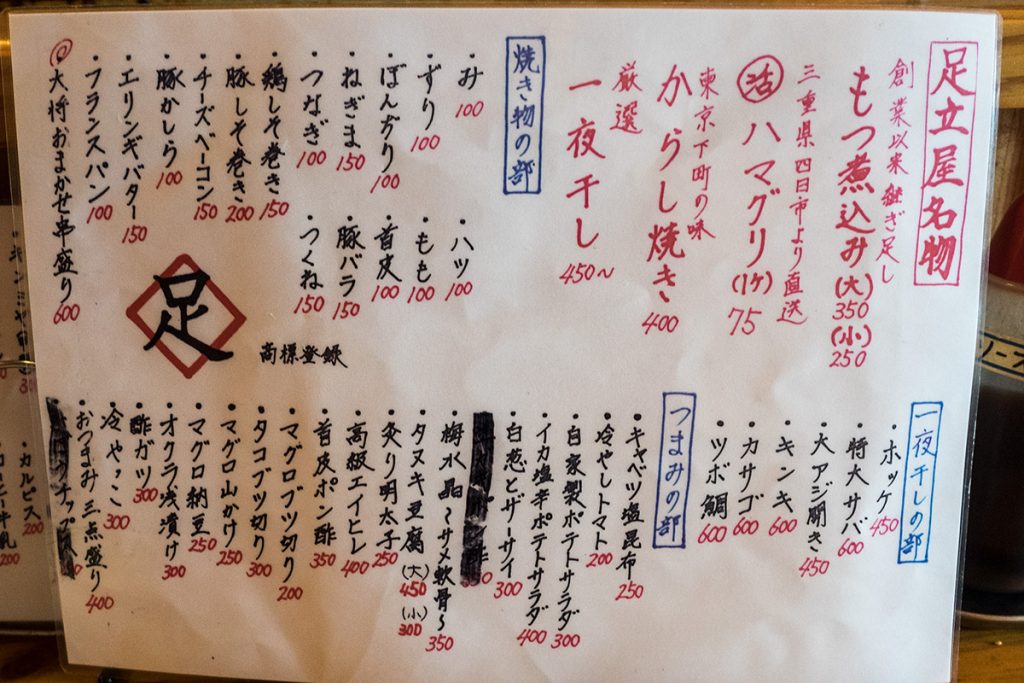 足立屋名物
創業以来継ぎ足し
もつ煮込み(大)350
(小)250
三重県四日市より直送
活ハマグリ(1ケ)75
東京下町の味
からし焼き、400
厳選
一夜干し450〜
焼き物の部
・み100
・ずり100
・ぼんぢり100
・ねぎま150
・つなぎ100
・鶏しそ巻き150
・豚しそ巻き200
・チーズベーコン150
・豚かしら100
・エリンギバター150
・フランスパン100
◎・大将おまかせ串盛り600
・ハツ100
・もも100
・首皮100
・豚バラ150
・つくね150
足
商標登録
一夜干しの部
・ホッケ450
・特大サバ600
・大アジ開き450
・キンキ600
・カサゴ600
・ツボ鯛600
つまみの部
・キャベツ塩昆布250
・冷やしトマト200
・自家製ポテトサラダ300
・イカ塩辛ポテトサラダ400
・白葱とザーサイ300
・梅水晶〜サメ軟骨〜350
・タヌキ豆腐(大)450(小)300
・炙り明太子250
・高級エイヒレ400
・首皮ポン酢350
・マグロブツ切り200
・タコブツ切り300
・マグロ山かけ250
・マグロ納豆250
・オクラ浅漬け300
・酢ガツ300
・冷やっこ300
・おつまみ三点盛り400
・カルピス200
200
ソース